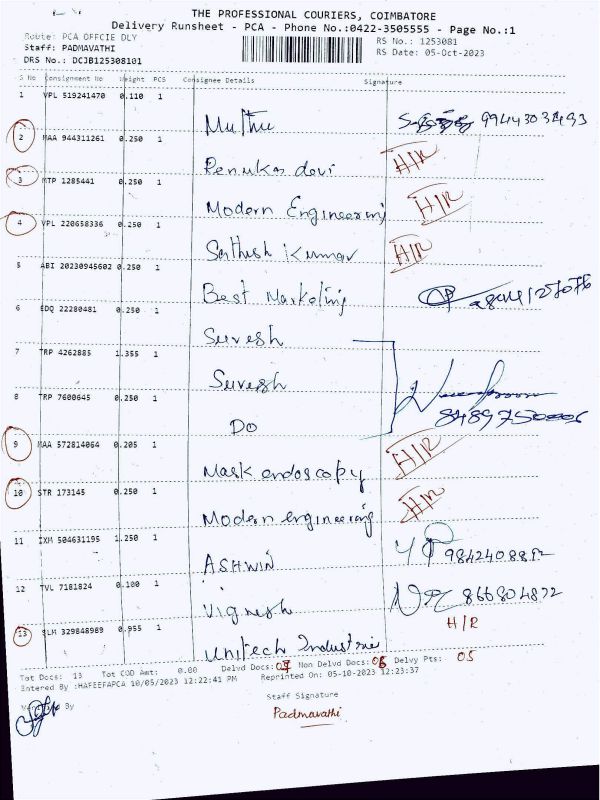 THE PROFESSIONAL COURIERS, COIMBATORE
Delivery Runsheet - PCA - Phone No.:0422-3505555 - Page No.:1
Route: PCA OFFCIE DLY
RS No.: 1253081
Staff: PADMAVATHI
RS Date: 05-Oct-2023
DRS No.: DCJB125308101
S No Consignment No Weight PCS Consignee Details Signature
1 VPL 519241470 0.110 1
Muthu 9944303493
2 MAA 944311261 0.250 1
Renuka devi H/R
3 MTP 1285441 0.250 1
Modern Engineering H/R
4 VPL 220658336 0.250 1
Sathish Kumar H/R
5 ABI 20230945602 0.250 1
Best Marketing
6 EDQ 22280481 0.250 1
Suresh
7 TRP 4262885 1.355 1
Suresh
8 TRP 7600645 0.250 1
DO
9 MAA 572814064 0.205 1
Mask endoscopy H/R
10 STR 173145 0.250 1
Modern engineering H/R
11 IXM 504631195 1.250 1
ASHWIN
12 TVL 7181824 0.100 1
Vignesh
13 SLM 329848989 0.955 1 H/R
Unitech Industrie
Tot Docs: 13 Tot COD Amt: 0.00 Delvd Docs: Non Delvd Docs: Delvy Pts: 05
Entered By :HAFEEFAPCA 10/05/2023 12:22:41 PM Reprinted On: 05-10-2023 12:23:37
Staff Signature
Verified By
Padmavathi